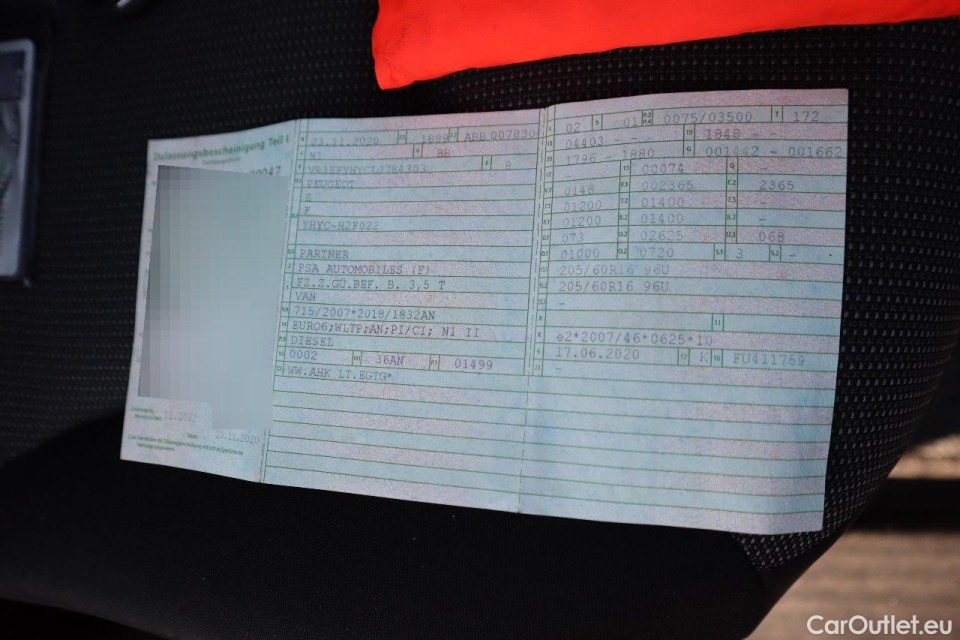 Zulassungsbescheinigung Teil I
23.11.2020 1889 ABB 007830
N1 BE
8
PEUGEOT
E
F
YHYC-H2F022
PARTNER
PSA AUTOMOBILES (F)
FZ.Z.GÜ.BEF. B. 3,5 T
VAN
715/2007*2018/1832AN
EURO6;WLTP;AN;PI/CI; N1 II
DIESEL
0002 36AN 01499
WW.AHK LT.EGTG*
23.11.2020
02 01 0075/03500 172
04403 - 1848 - -
1796 - 1880 001442 - 001662
- 00074 -
0148 002365 2365
01200 01400 -
01200 01400 -
073 02625 068
01000 0720 3 - -
205/60R16 96U
205/60R16 96U
-
-
e2*2007/46*0625*10
17.06.2020 K FU411759
-
CarOutlet.eu